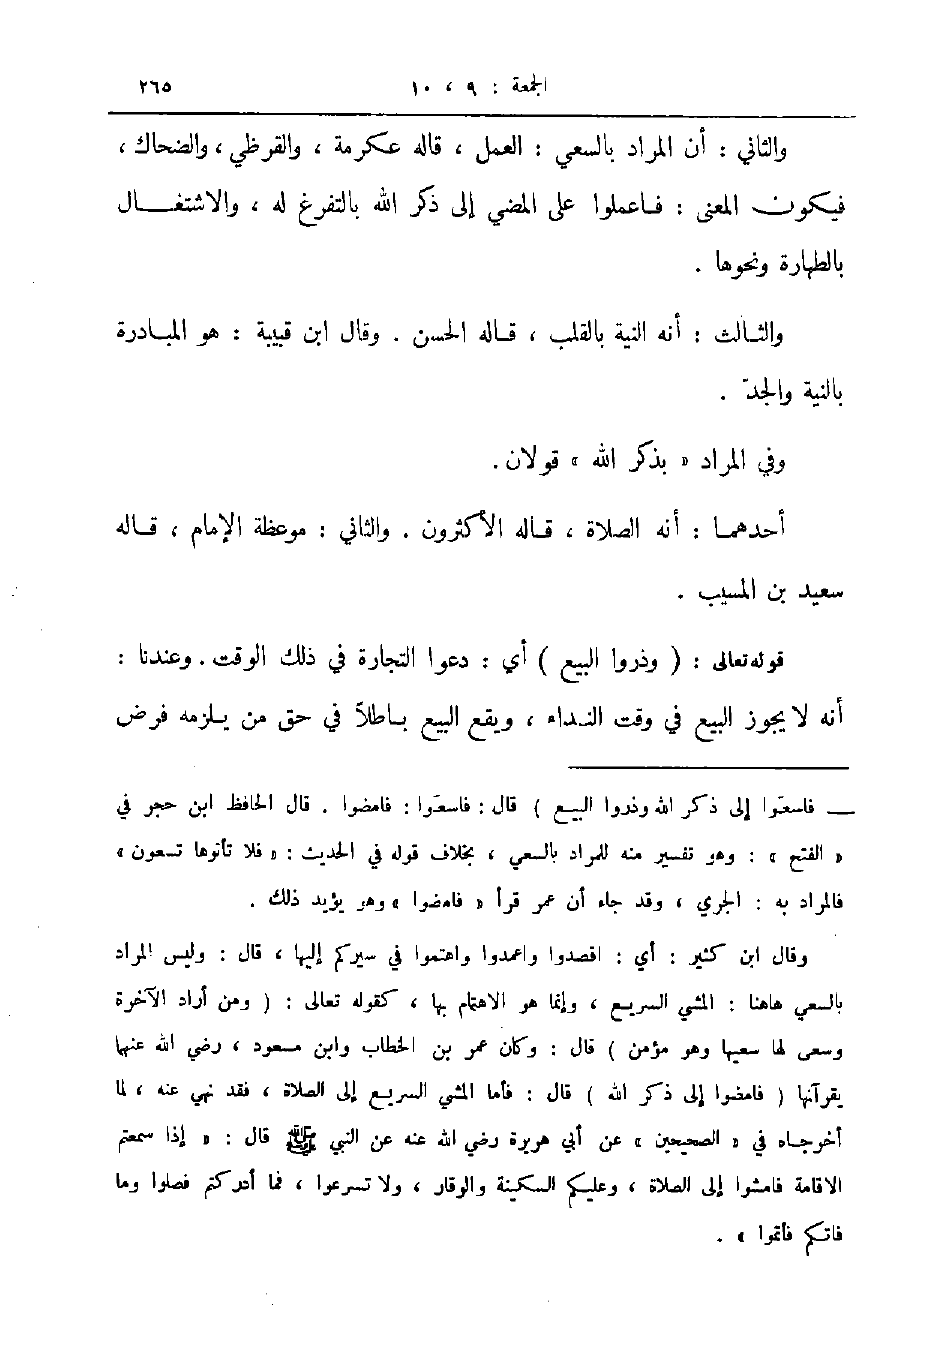 الجمعة : ٩ ، ١٠ ٢٦٥
والثاني : أن المراد بالسعي : العمل ، قاله عكرمة ، والقرظي ، والضحاك ،
فيكون المعنى : فاعملوا على المضي إلى ذكر الله بالتفرغ له ، والاشتغال
بالطهارة ونحوها .
والثالث : أنه النية بالقلب ، قاله الحسن . وقال ابن قتيبة : هو المبادرة
بالنية والجدّ .
وفي المراد « بذكر الله » قولان.
أحدهما : أنه الصلاة ، قاله الأكثرون . والثاني : موعظة الإمام ، قاله
سعيد بن المسيب .
قوله تعالى : ( وذروا البيع ) أي : دعوا التجارة في ذلك الوقت . وعندنا :
أنه لا يجوز البيع في وقت النداء ، ويقع البيع باطلاً في حق من يلزمه فرض
ــ فاسعَوا إلى ذكر الله وذروا البيع ) قال : فاسعَوا : فامضوا . قال الحافظ ابن حجر في
« الفتح » : وهو تفسير منه للمراد بالسعي ، بخلاف قوله في الحديث : « فلا تأتوها تسعون »
فالمراد به : الجري ، وقد جاء أن عمر قرأ « فامضوا » وهو يؤيد ذلك .
وقال ابن كثير : أي : اقصدوا واعمدوا واهتموا في سيركم إليها ، قال : وليس المراد
بالسعي هاهنا : المشي السريع ، وإنما هو الاهتمام بها ، كقوله تعالى : ( ومن أراد الآخرة
وسعى لها سعيها وهو مؤمن ) قال : وكان عمر بن الخطاب وابن مسعود ، رضي الله عنهما
يقرآنها ( فامضوا إلى ذكر الله ) قال : فأما المشي السريع إلى الصلاة ، فقد نهي عنه ، لما
أخرجاه في « الصحيحين » عن أبي هريرة رضي الله عنه عن النبي ﷺ قال : « إذا سمعتم
الاقامة فامشوا إلى الصلاة ، وعليكم السكينة والوقار ، ولا تسرعوا ، فما أدركتم فصلوا وما
فاتكم فأتموا » .